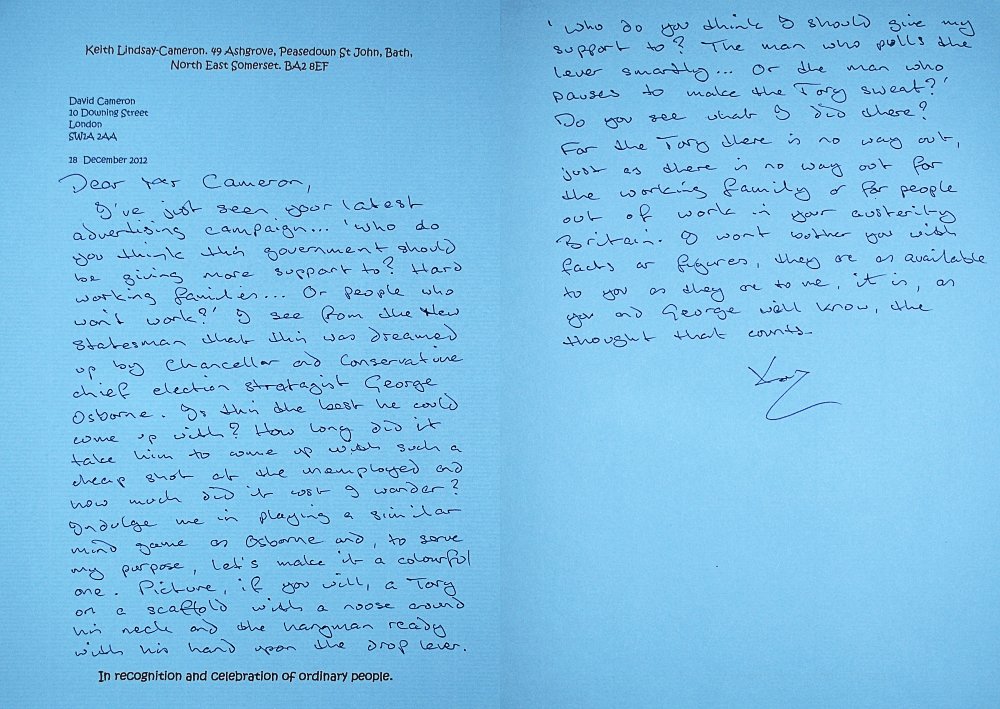 Keith Lindsay-Cameron. 49 Ashgrove, Peasedown St John, Bath,
North East Somerset. BA2 8EF
David Cameron
10 Downing Street
London
SW1A 2AA
18 December 2012
Dear Mr Cameron,
I've just seen your latest
advertising campaign... 'Who do
you think this government should
be giving more support to? Hard
working families... Or people who
won't work?' I see from the New
Statesman that this was dreamed
up by Chancellor and Conservative
chief election stratagist George
Osborne. Is this the best he could
come up with? How long did it
take him to come up with such a
cheap shot at the unemployed and
how much did it cost I wonder?
Indulge me in playing a similar
mind game as Osborne and, to serve
my purpose, let's make it a colourful
one. Picture, if you will, a Tory
on a scaffold with a noose around
his neck and the hangman ready
with his hand upon the drop lever.
In recognition and celebration of ordinary people.
'Who do you think I should give my
support to? The man who pulls the
lever smartly... Or the man who
pauses to make the Tory sweat?'
Do you see what I did there?
For the Tory there is no way out,
just as there is no way out for
the working family or for people
out of work in your austerity
Britain. I wont bother you with
facts or figures, they are as available
to you as they are to me, it is, as
you and George well know, the
thought that counts.